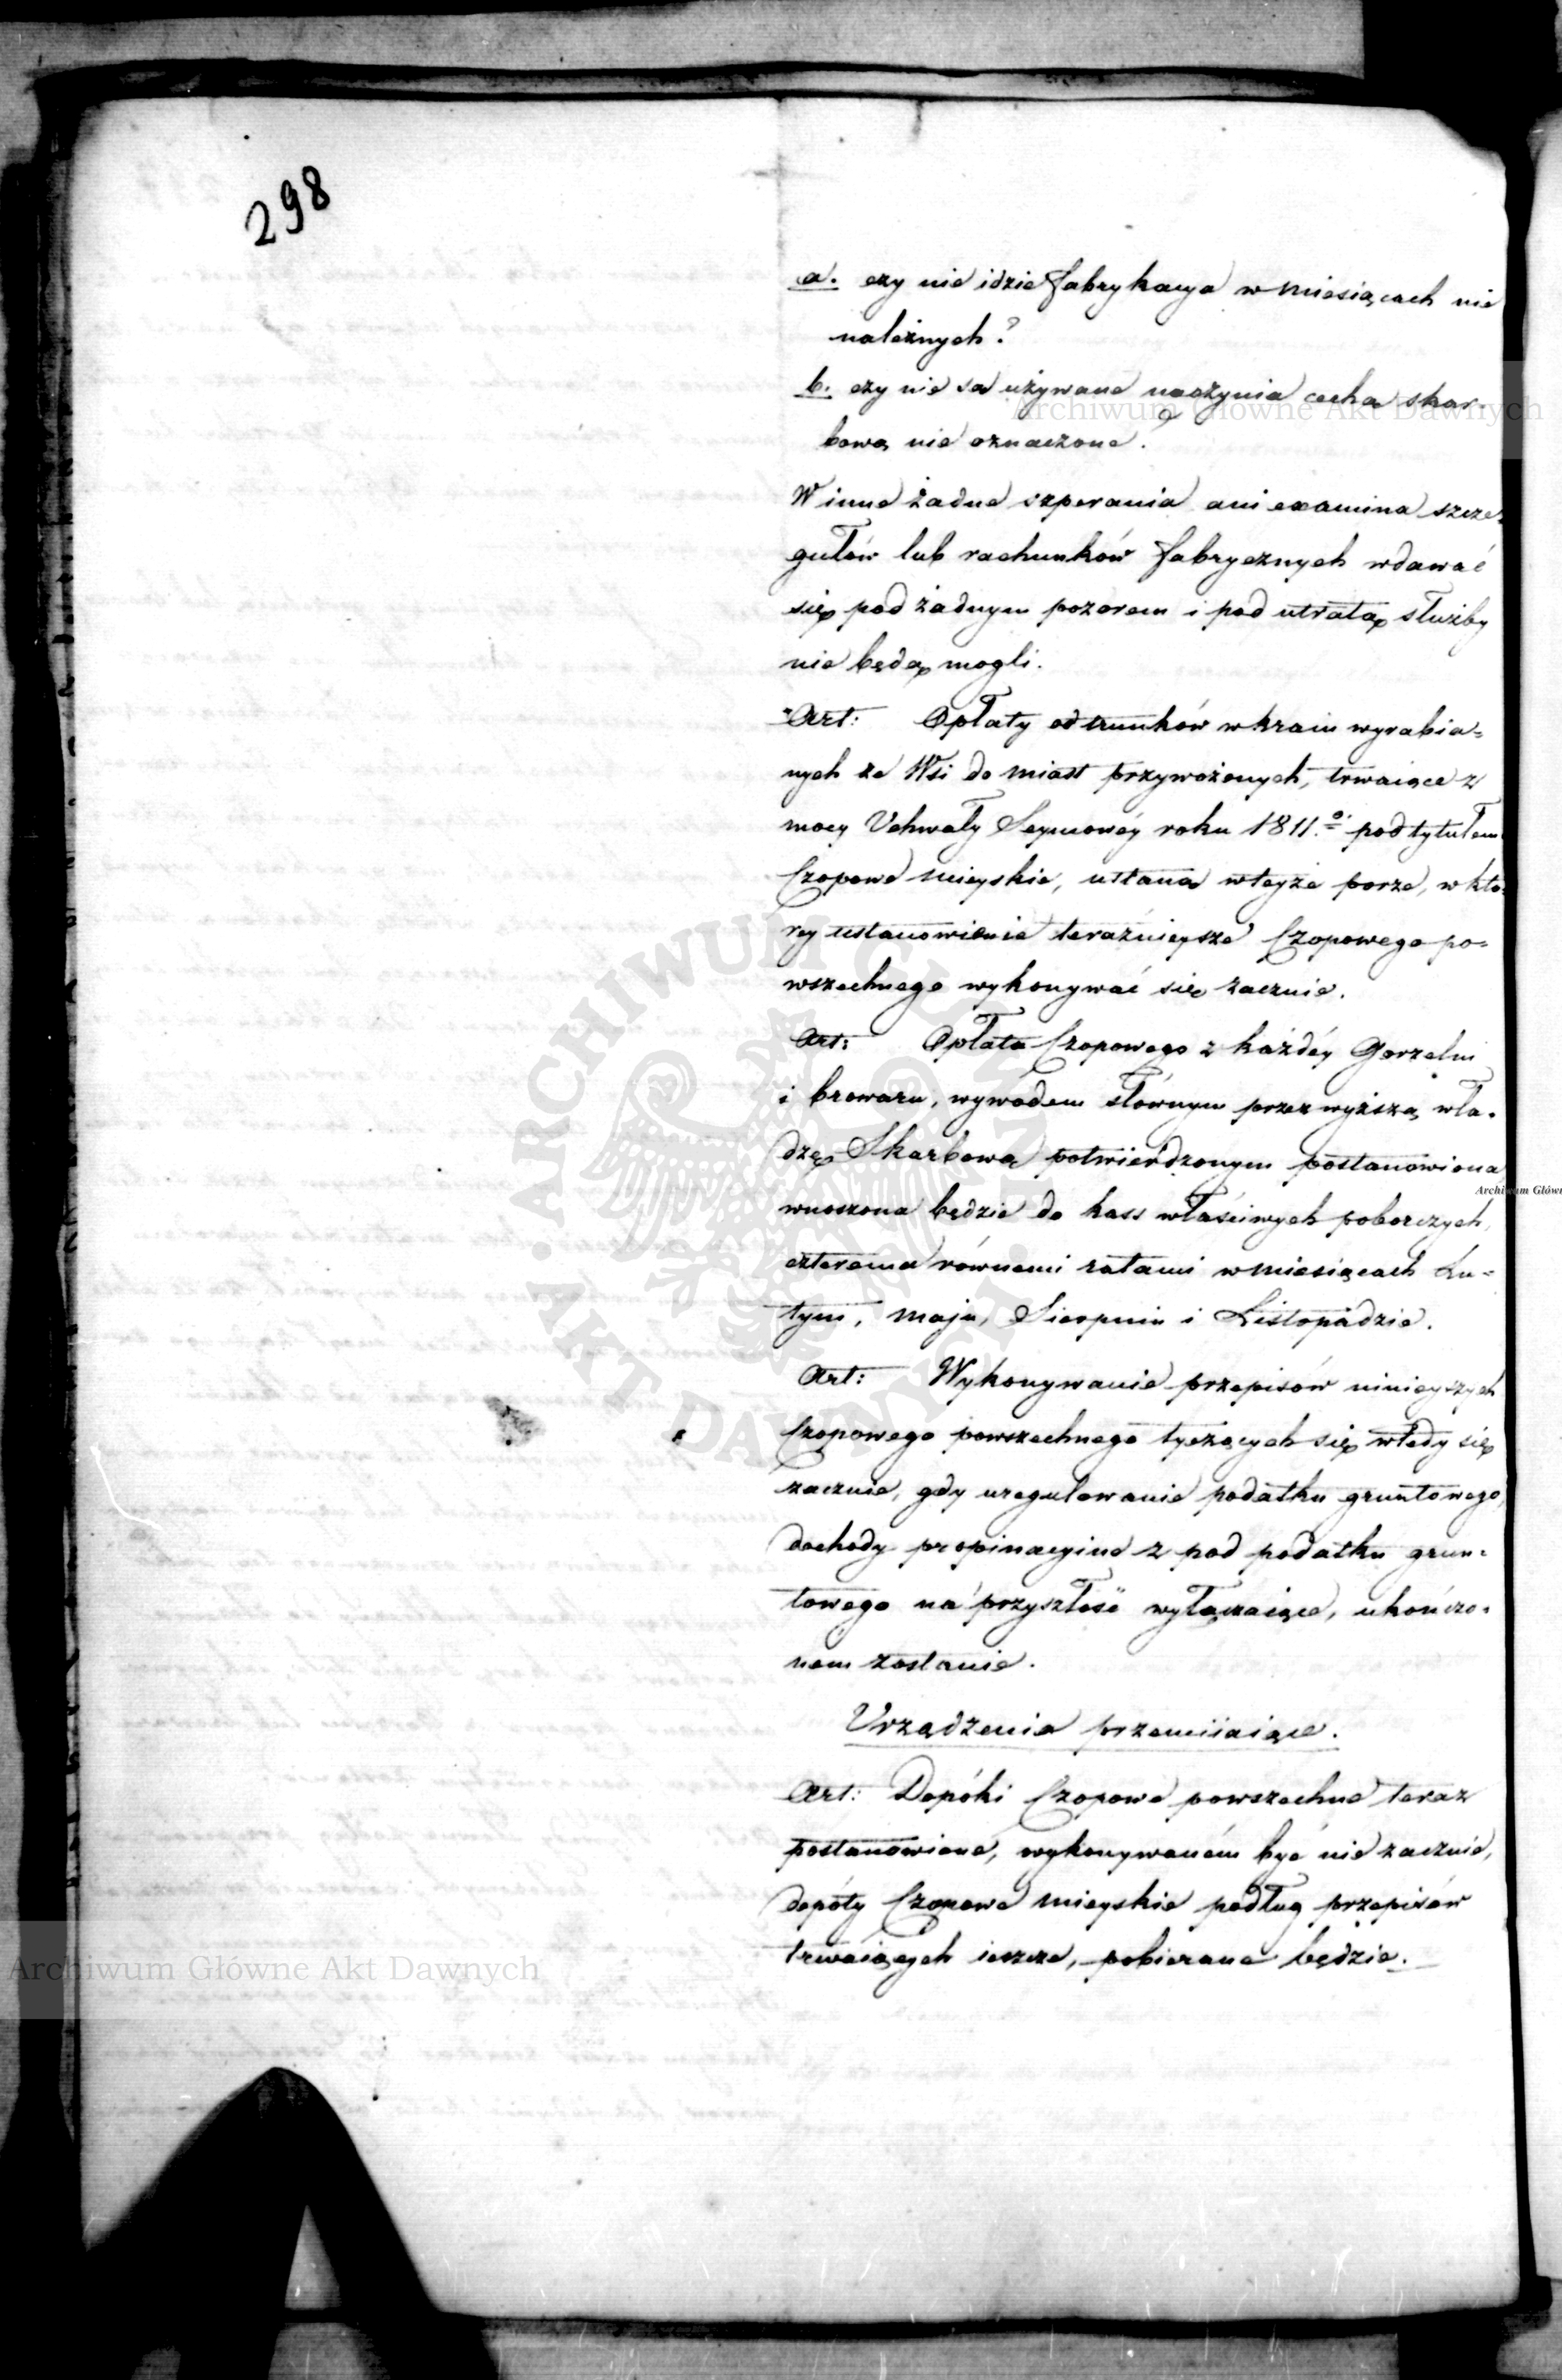 298
a. czy nie idzie fabrykacya w Miesiącach nie
należnych?
b. czy nie są używane naczynia cechą skar-
bową nie oznaczone.
W inne żadne szperania ani examina szcze-
gułów lub rachunków fabrycznych wdawać
się pod żadnym pozorem i pod utratą służby
nie będą mogli.
Art: Opłaty od trunków w kraiu wyrabia=
nych ze Wsi do Miast przywożonych, trwaiące z
mocy Uchwały Seymowéy roku 1811.o pod tytułem
Czopowe Mieyskie, ustaną wteyże porze, w któ-
rey ustanowienie teraźnieysze Czopowego po=
wszechnego wykonywać się zacznie.
Art: Opłata Czopowego z każdéy Gorzelni
i browaru, wywodem słównym przez wyższą wła-
dzę Skarbową potwierdzonym postanowiona
wnoszona będzie do kass właściwych poborczych,
czterema równemi ratami w Miesiącach Lu=
tym, Maju, Sierpniu i Listopadzie.
Art: Wykonywanie przepisów ninieyszych
Czopowego powszechnego tyczących się wtedy się
zacznie, gdy uregulowanie podatku gruntowego,
dochody propinacyine z pod podatku grun=
towego na przyszłość wyłączaiące, ukończo-
nem zostanie.
Urządzenia przemiiaiące.
Art: Dopóki Czopowe powszechne teraz
postanowione, wykonywaném być nie zacznie,
dopóty Czopowe Mieyskie podług przepisów
trwaiących ieszcze, pobierane będzie.
Archiwum Główne Akt Dawnych
Archiwum Główne Akt Dawnych
Archiwum Główn
ARCHIWUM GŁÓWNE AKT DAWNYCH